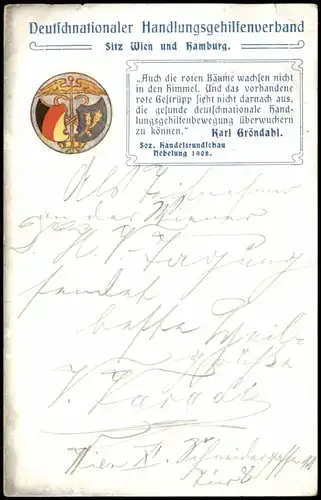 Deutschnationaler Handlungsgehilfenverband
Sitz Wien und Hamburg.
„Auch die roten Bäume wachsen nicht
in den Himmel. Und das vorhandene
rote Gestrüpp sieht nicht darnach aus,
die gesunde deutschnationale Hand-
lungsgehilfenbewegung überwuchern
zu können.“ Karl Gröndahl.
Soz. Handelsrundschau
Nebelung 1908.
Als Teilnehmer
an der Wiener
D. H. V. Tagung
sendet
beste Heils-
grüße
Wien XI. Schneidergasse
Tür 8